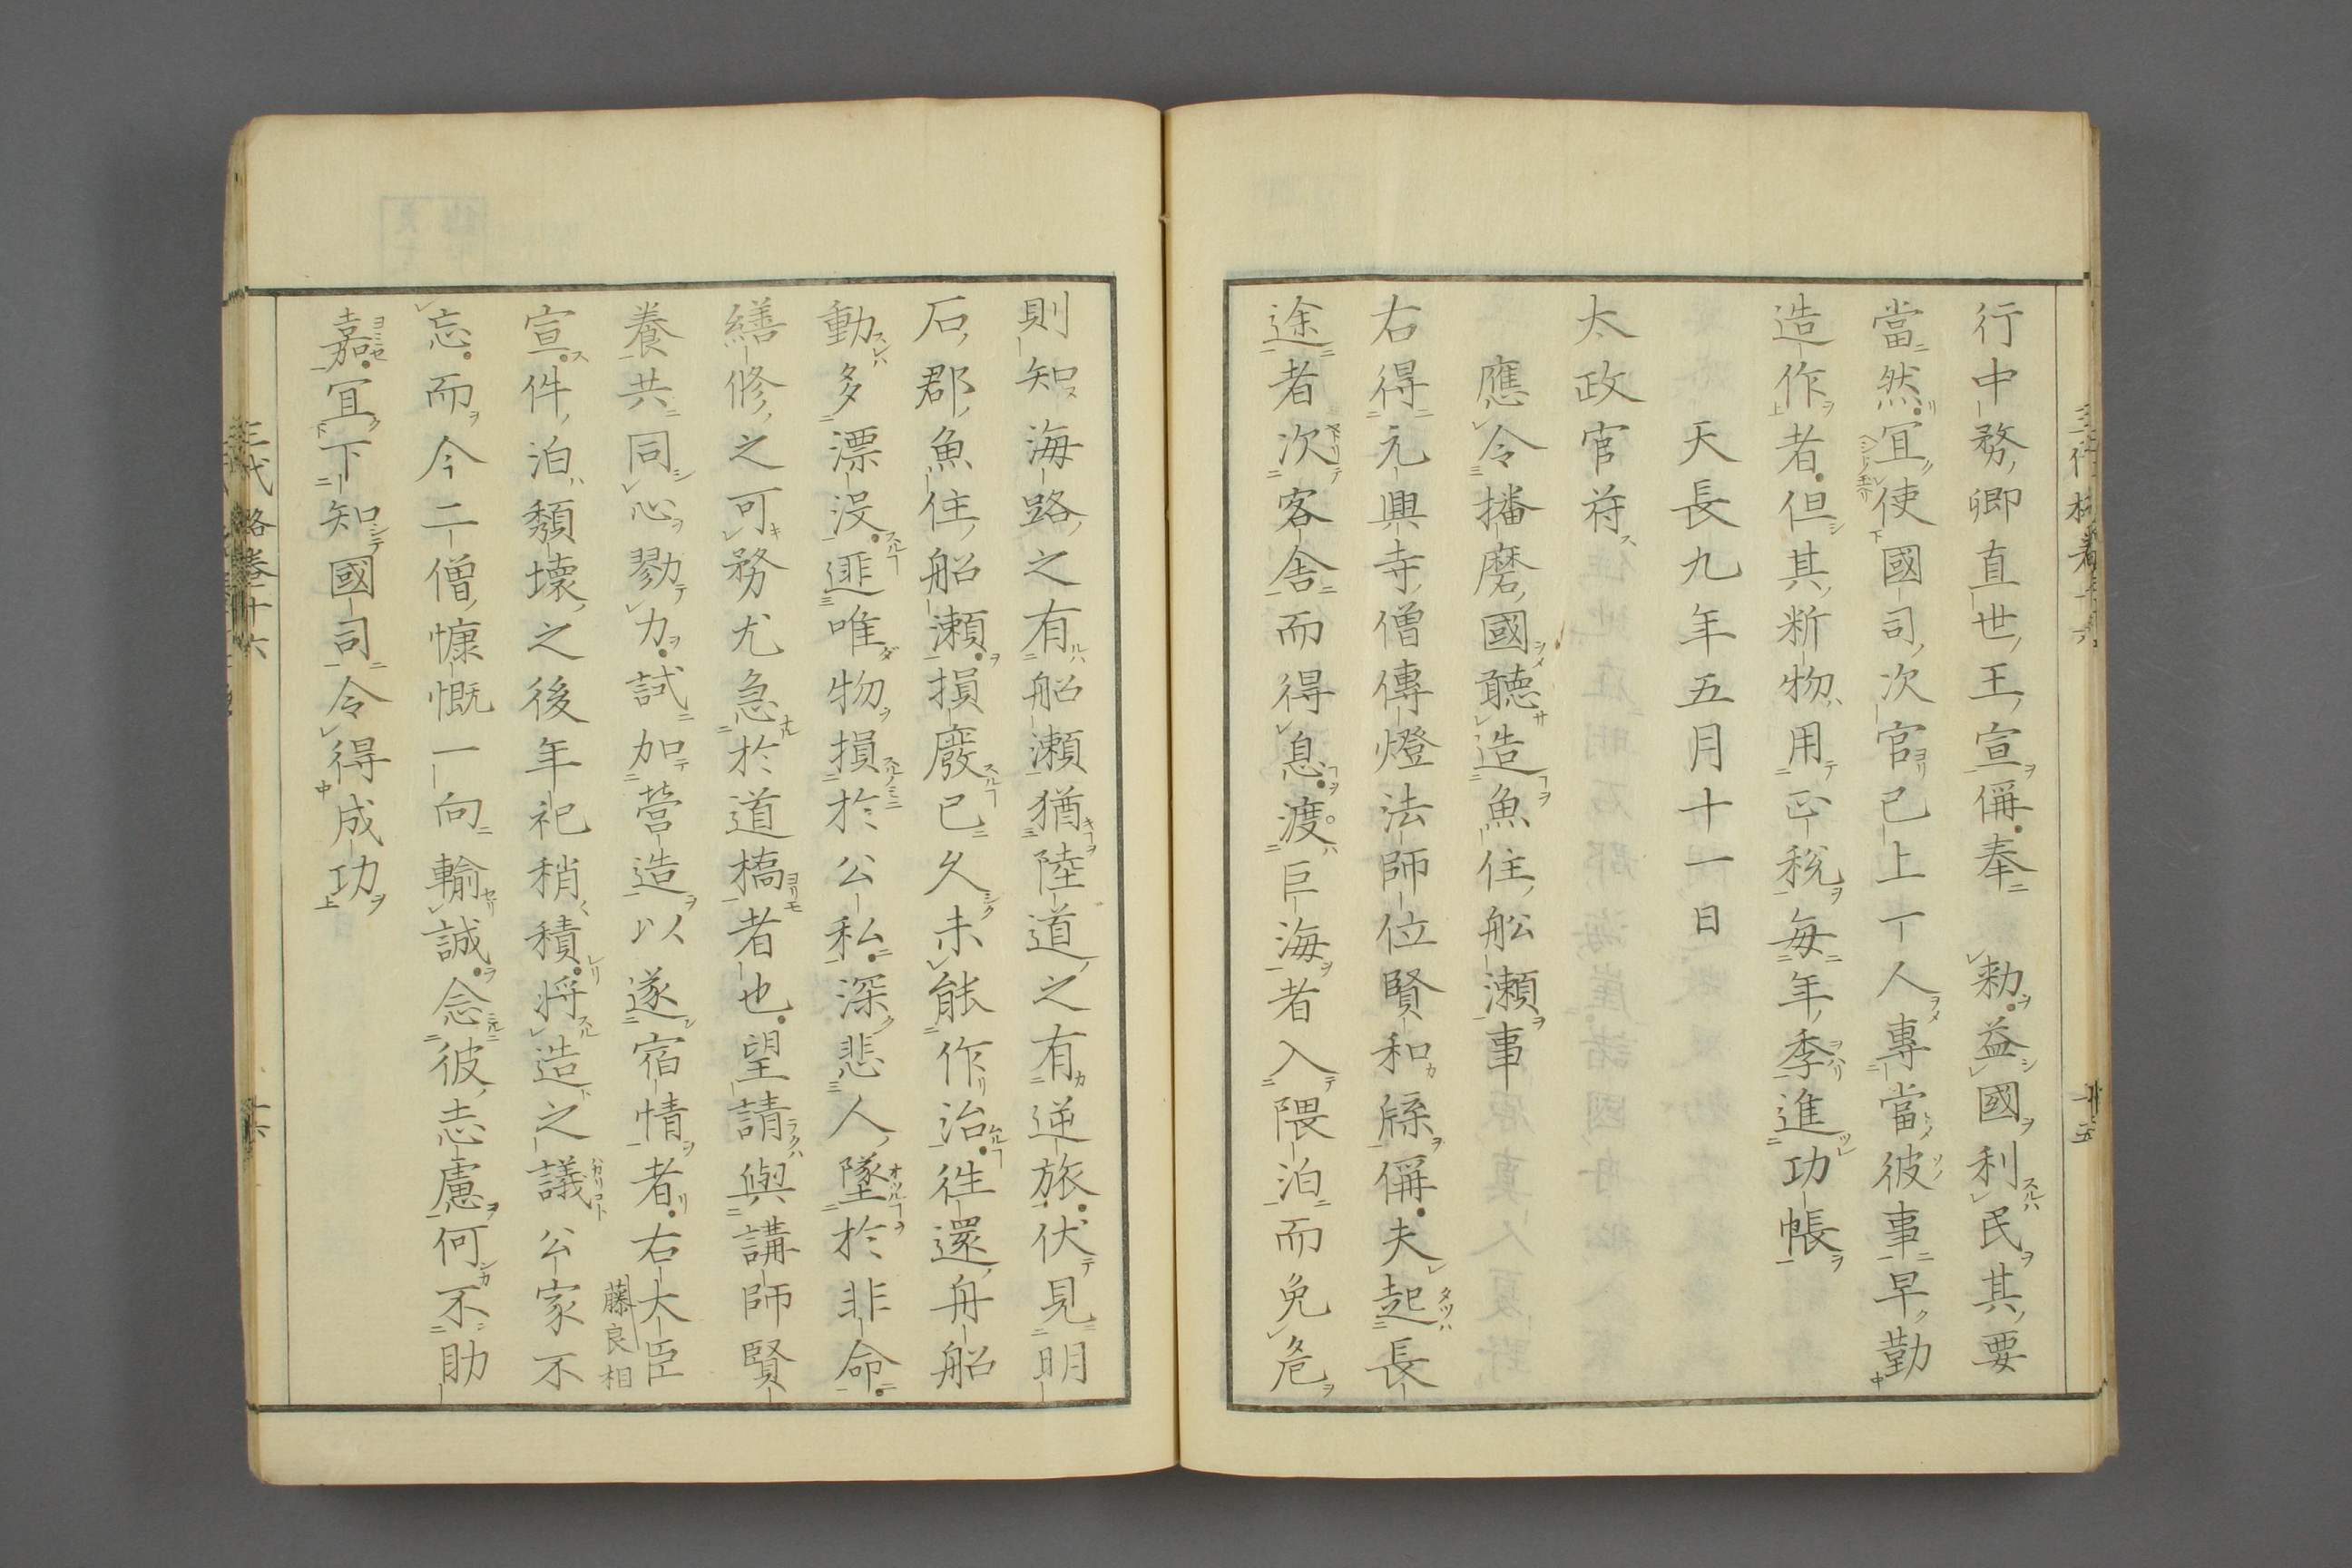 行中務卿直世王宣偁奉　勅益國利民其要
當然宜使國司次官已上一人專當彼事早勤
造作者但其新物用正税每年季進功帳
天長九年五月十一日
太政官符
應令播磨國聽造魚住舩瀬事
右得元興寺僧傳燈法師位賢和牒偁夫起長
途者次客舎而得息渡巨海者入隈泊而免危
則知海路之有船瀬猶陸道之有逆旅伏見明
石郡魚住船瀬損廢已久未能作治徃還舟船
動多漂没匪唯物損於公私深悲人墜於非命
繕修之可務尤急於道橋者也望請與講師賢
養共同心勠力試加營造以遂宿情者右大臣
藤良相
宣件泊頽壊之後年祀稍積将造之議公家不
忘而今二僧慷慨一向輸誠念彼志慮何不助
嘉宜下知國司令得成功